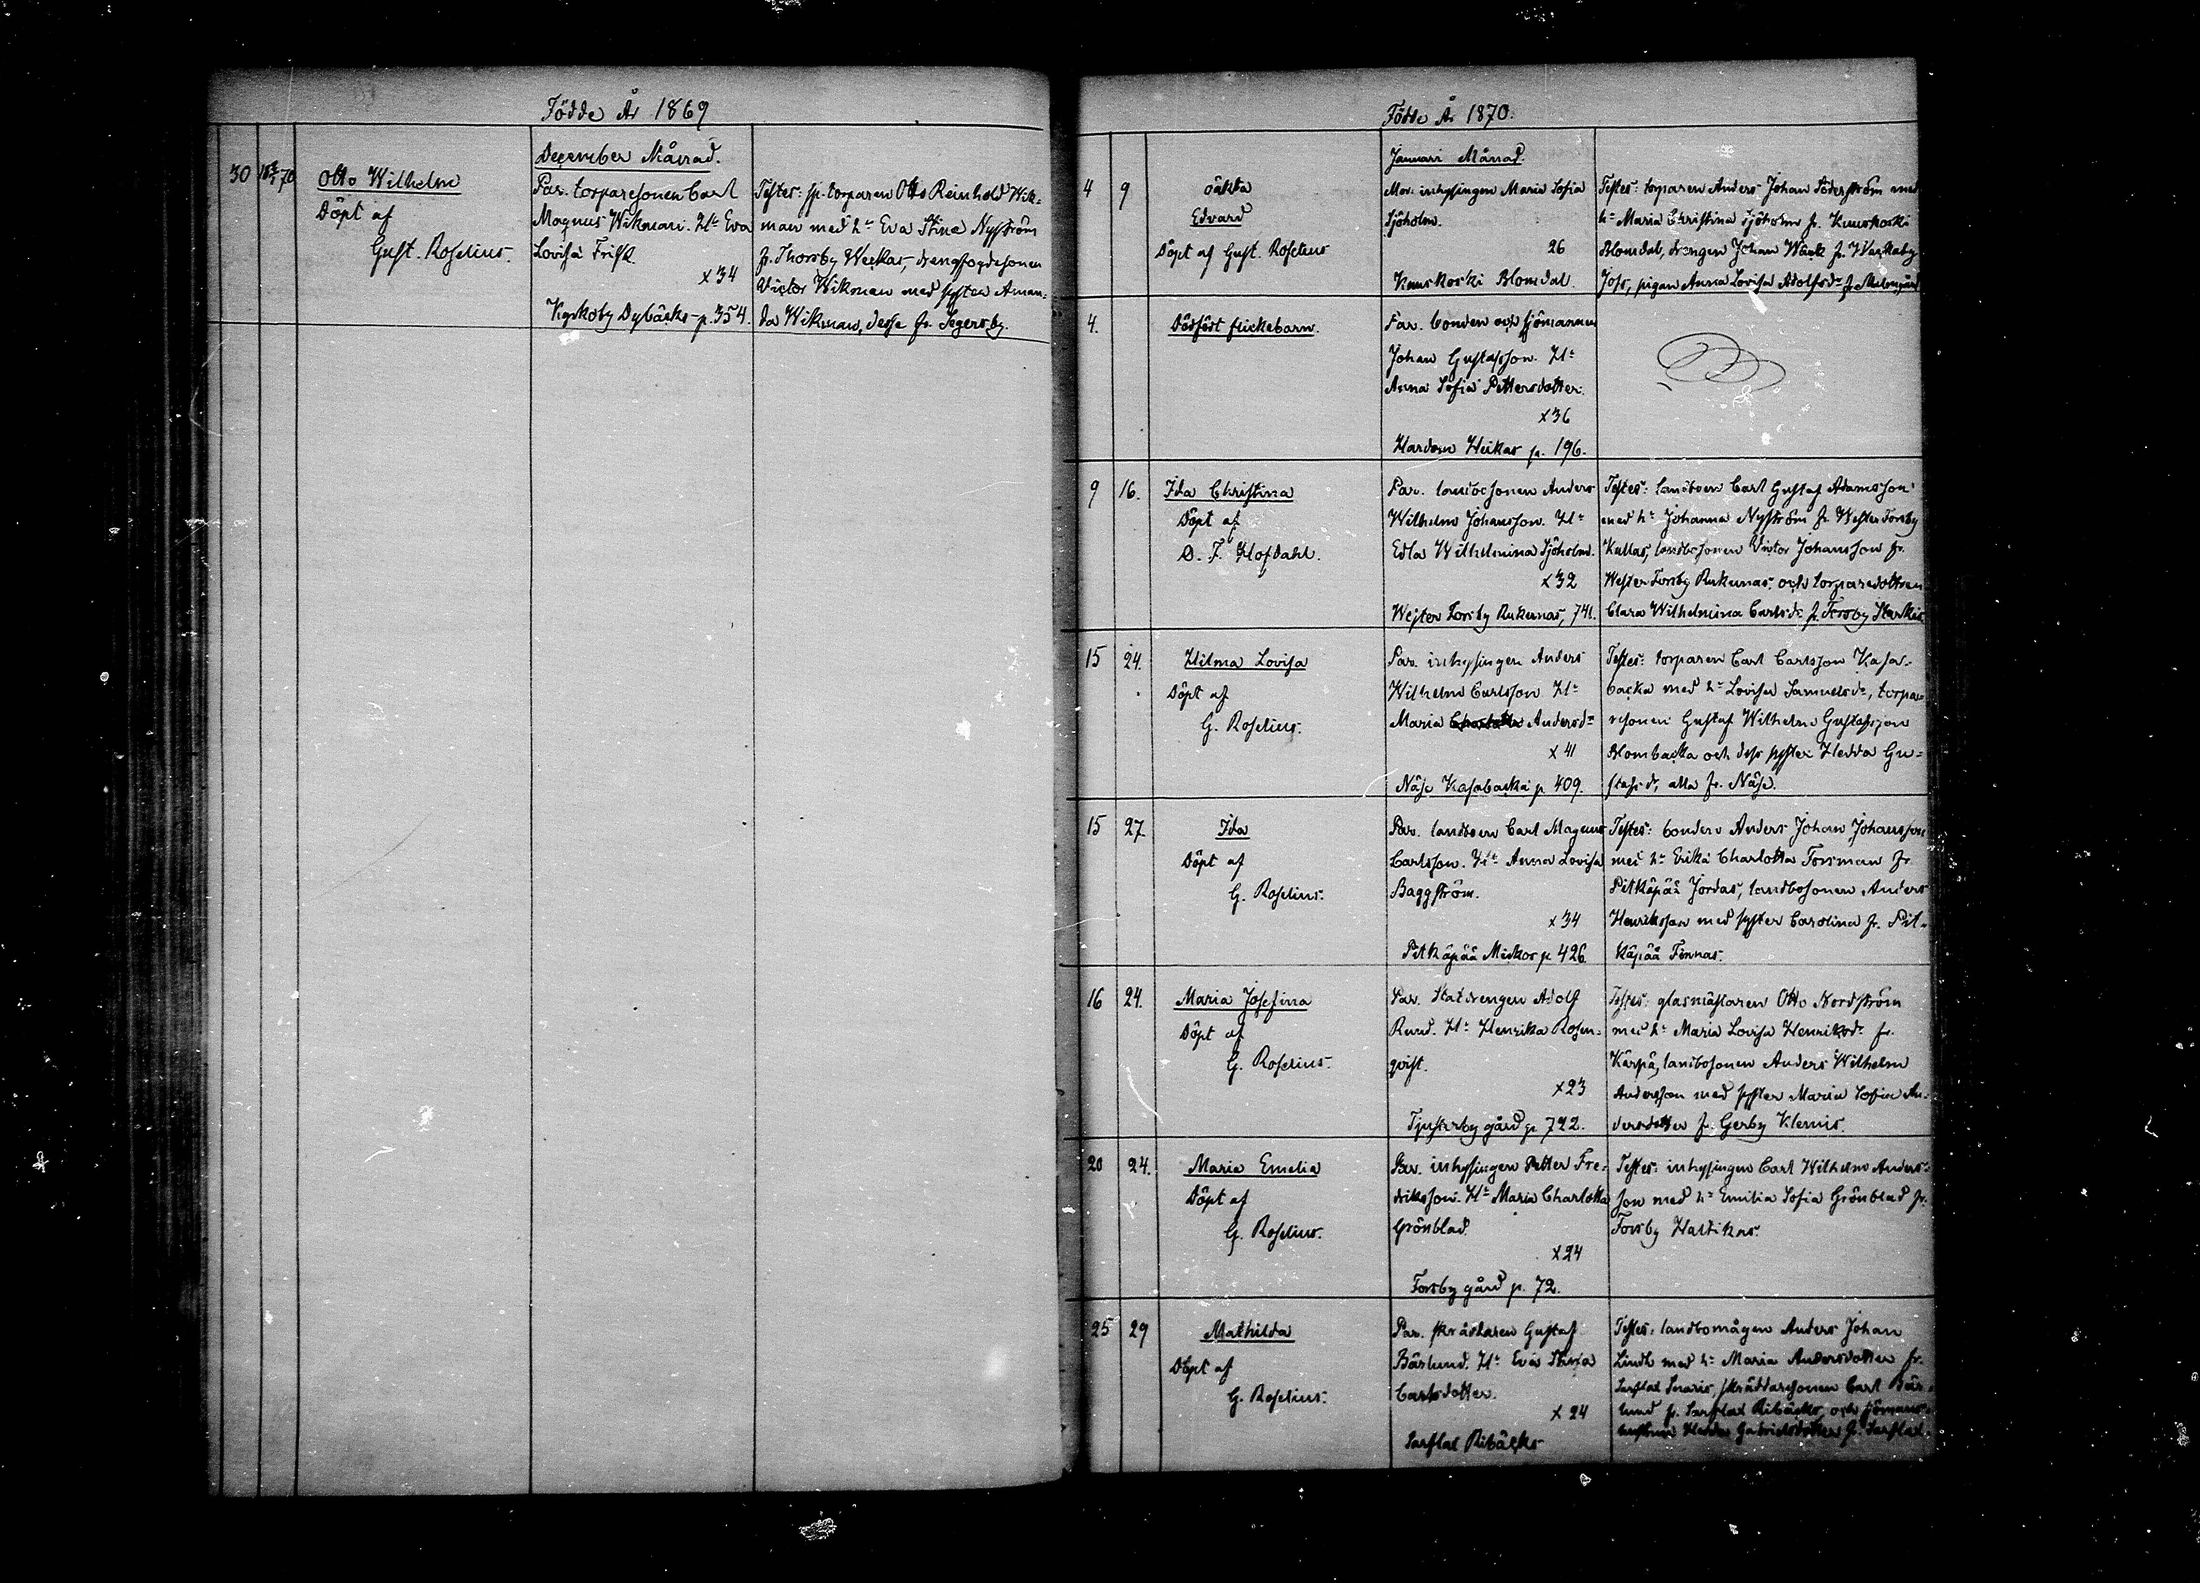 Födde År 1869
December Månad.
30 70 Otto Wilhelm
Döpt af
Gust. Roselius.
Par. torparesonen Carl
Magnus Wikman. H:u Eva
Lovisa Frisk.
x34
Kyrkoby Dybäcks p. 354.
Testes: sp. torparen Otto Reinhold Wik-
man med h:u Eva Stina Nyström
fr. Thorsby Weckas, drengfogdesonen
Victor Wikman med syster Aman-
da Wikman, desse fr. Segersby.
Födde År 1870.
Januari Månad.
4 9 oäkta
Edvard
Döpt af Gust. Roselius
Mor. inhysingen Maria Sofia
Sjöholm.
26
Kuuskoski Blomdal.
Testes: torparen Anders Johan Söderström med
h:u Maria Christina Sjöholm fr. Kuuskoski
Blomdal, drengen Johan Wäck fr. Warkaby
Jofs, pigan Anna Lovisa Adolfsd:r fr.
4. Dödfödt flickebarn.
Par. bonden och sjömannen
Johan Gustafsson. H:u
Anna Sofia Pettersdotter.
x36
Hardom Heikas p. 196.
9 16. Ida Christina
Döpt af
O. F. Hofdahl.
Par. landbosonen Anders
Wilhelm Johansson. H:u
Edla Wilhelmina Sjöholm.
x32
Wester Forsby Rukunas, 741.
Testes: landboen Carl Gustaf Adamsson
med h:u Johanna Nyström fr. Wester Forsby
Kallas, landbosonen Victor Johansson fr.
Wester Forsby Rukunas och torparedottren
Clara Wilhelmina Carlsd:r fr. Forsby
15 24. Hilma Lovisa
Döpt af
G. Roselius.
Par. inhysingen Anders
Wilhelm Carlsson H:u
Maria Charlotta Andersd:r
x41
Näse Kasabacka p. 409.
Testes: torparen Carl Carlsson Kasa-
backa med h:u Lovisa Samuelsd:r, torpa-
resonen Gustaf Wilhelm Gustafsson
Blombacka och dess syster Hedda Gu-
stafsd:r, alla fr. Näse.
15 27. Ida
Döpt af
G. Roselius.
Par. landboen Carl Magnus
Carlsson. H:u Anna Lovisa
Baggström.
x34
Pitkäpää Mickos p. 426.
Testes: bonden Anders Johan Johansson
med h:u Erika Charlotta Forsman fr.
Pitkäpää Jordas, landbosonen Anders
Henriksson med syster Carolina fr. Pit-
käpää Finnas.
16 24. Maria Josefina
Döpt af
G. Roselius.
Par. Statdrengen Adolf
Rund. H:u Henrika Rosen-
qvist.
x23
Tjusterby gård p. 722.
Testes: glasmästaren Otto Nordström
med h:u Maria Lovisa Henriksd:r fr.
Kärpä, landbosonen Anders Wilhelm
Andersson med syster Maria Sofia An-
dersdotter fr. Gerby Klemis.
20 24. Maria Emelia
Döpt af
G. Roselius.
Par. inhysingen Petter Fre-
driksson. H:u Maria Charlotta
Grönblad.
x24
Forsby gård p. 72.
Testes: inhysingen Carl Wilhelm Anders-
son med h:u Emilia Sofia Grönblad fr.
Forsby Haltikas.
25 29 Mathilda
Döpt af
G. Roselius.
Par. skräddaren Gustaf
Bärlund. H:u Eva Stina
Carlsdotter.
x24
Sarflax Ribäcks
Testes: landbomågen Anders Johan
Lindh med h:u Maria Andersdotter fr.
Sarflax Snaris, skräddaresonen Carl Bär-
lund fr. Sarflax Ribäcks, och sjömans-
hustrun Hedda Gabrielsdotter fr. Sarflax.